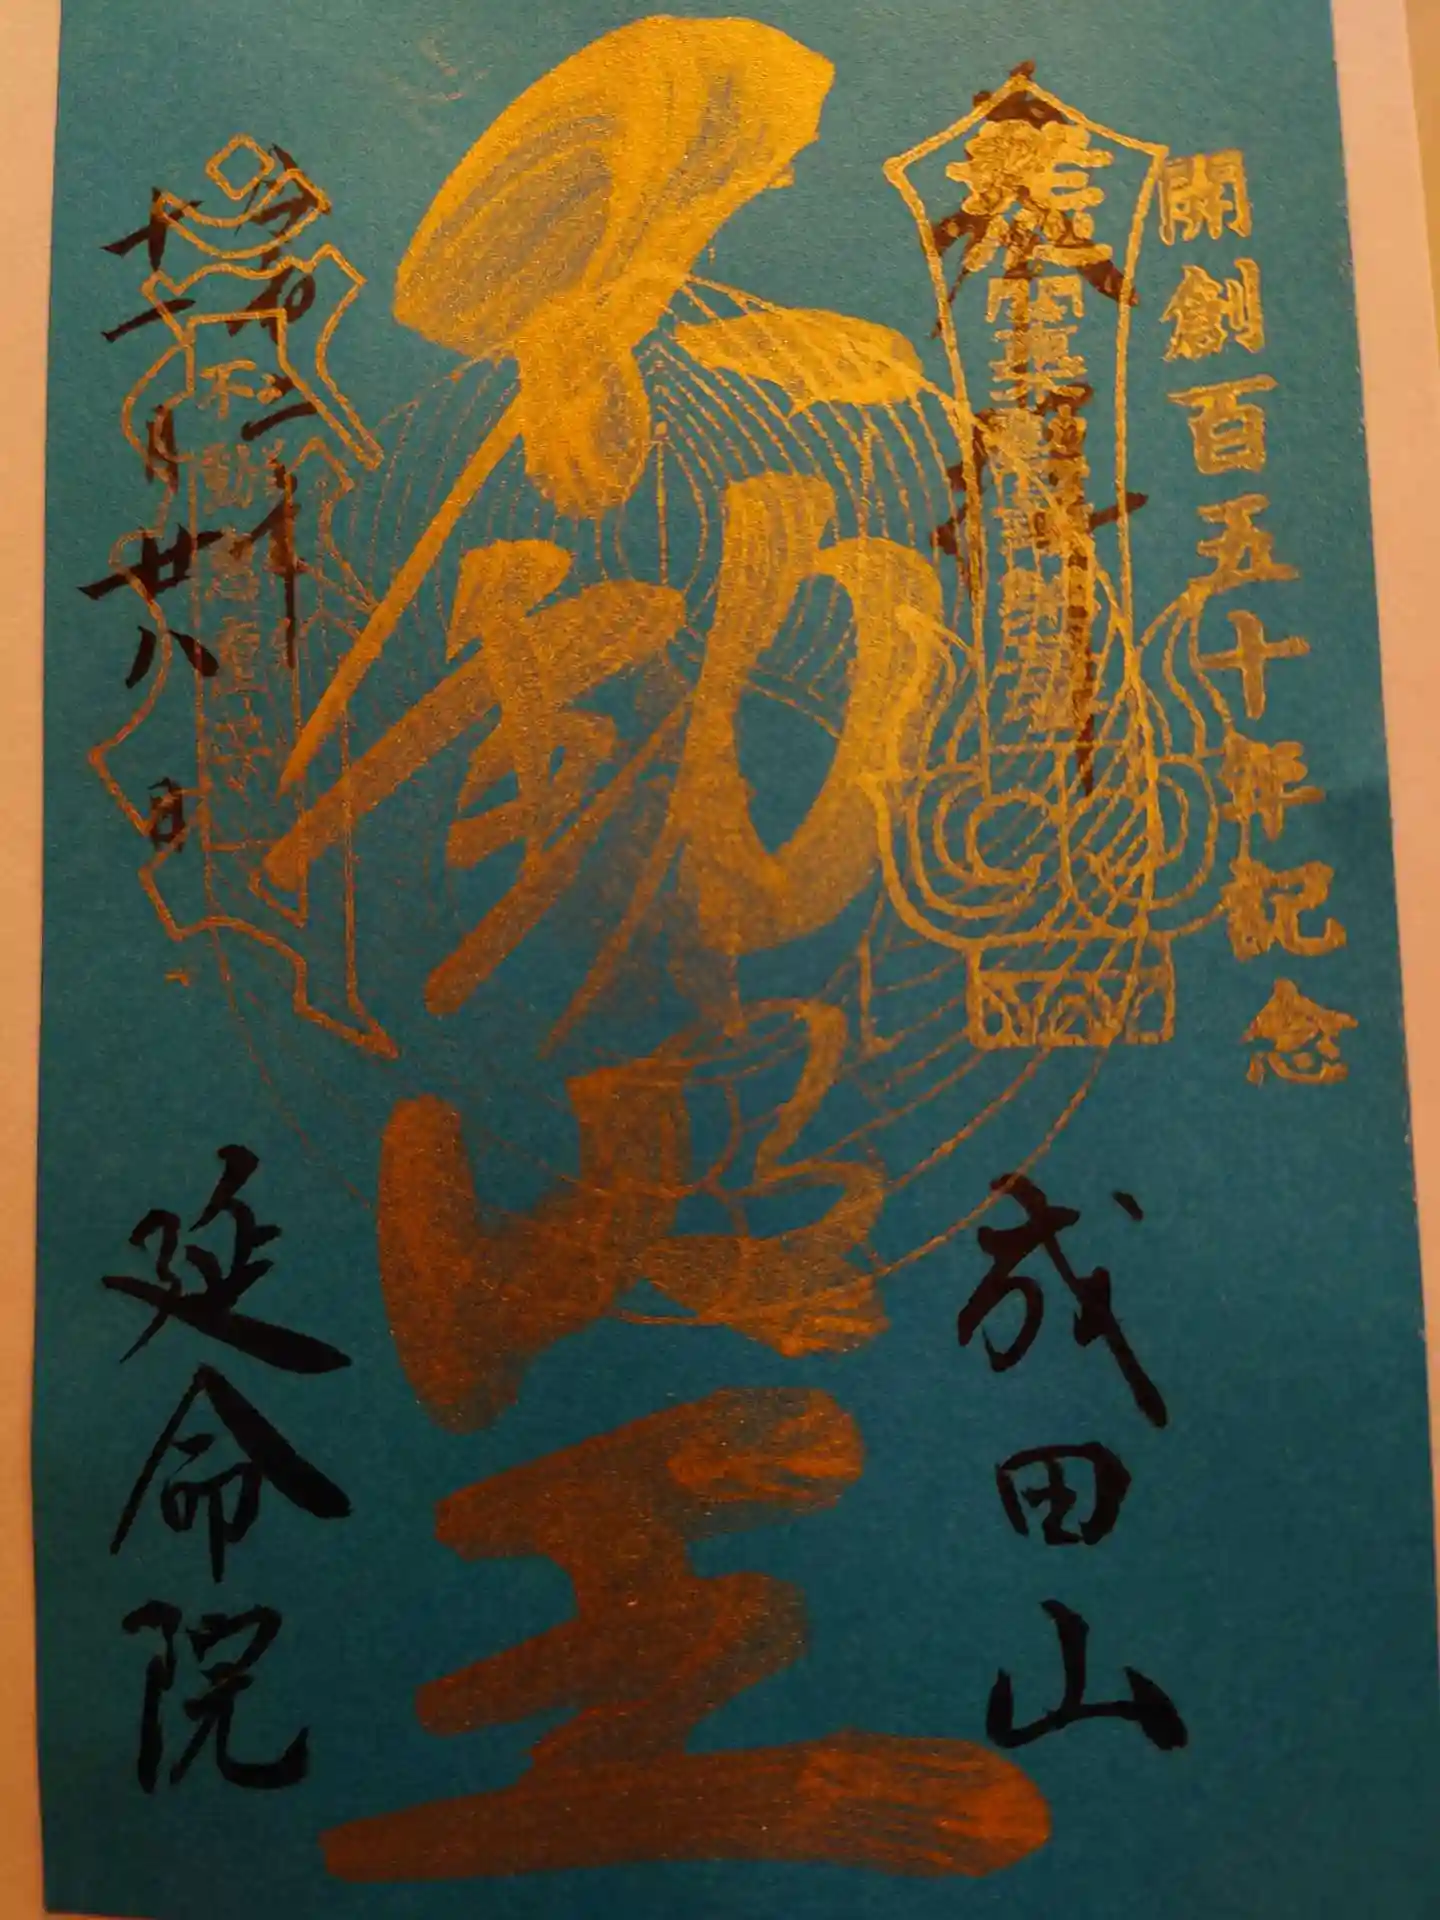 開創百五十年記念
奉拝
成田山
不動明王
令和二年
十一月廿八日
延命院